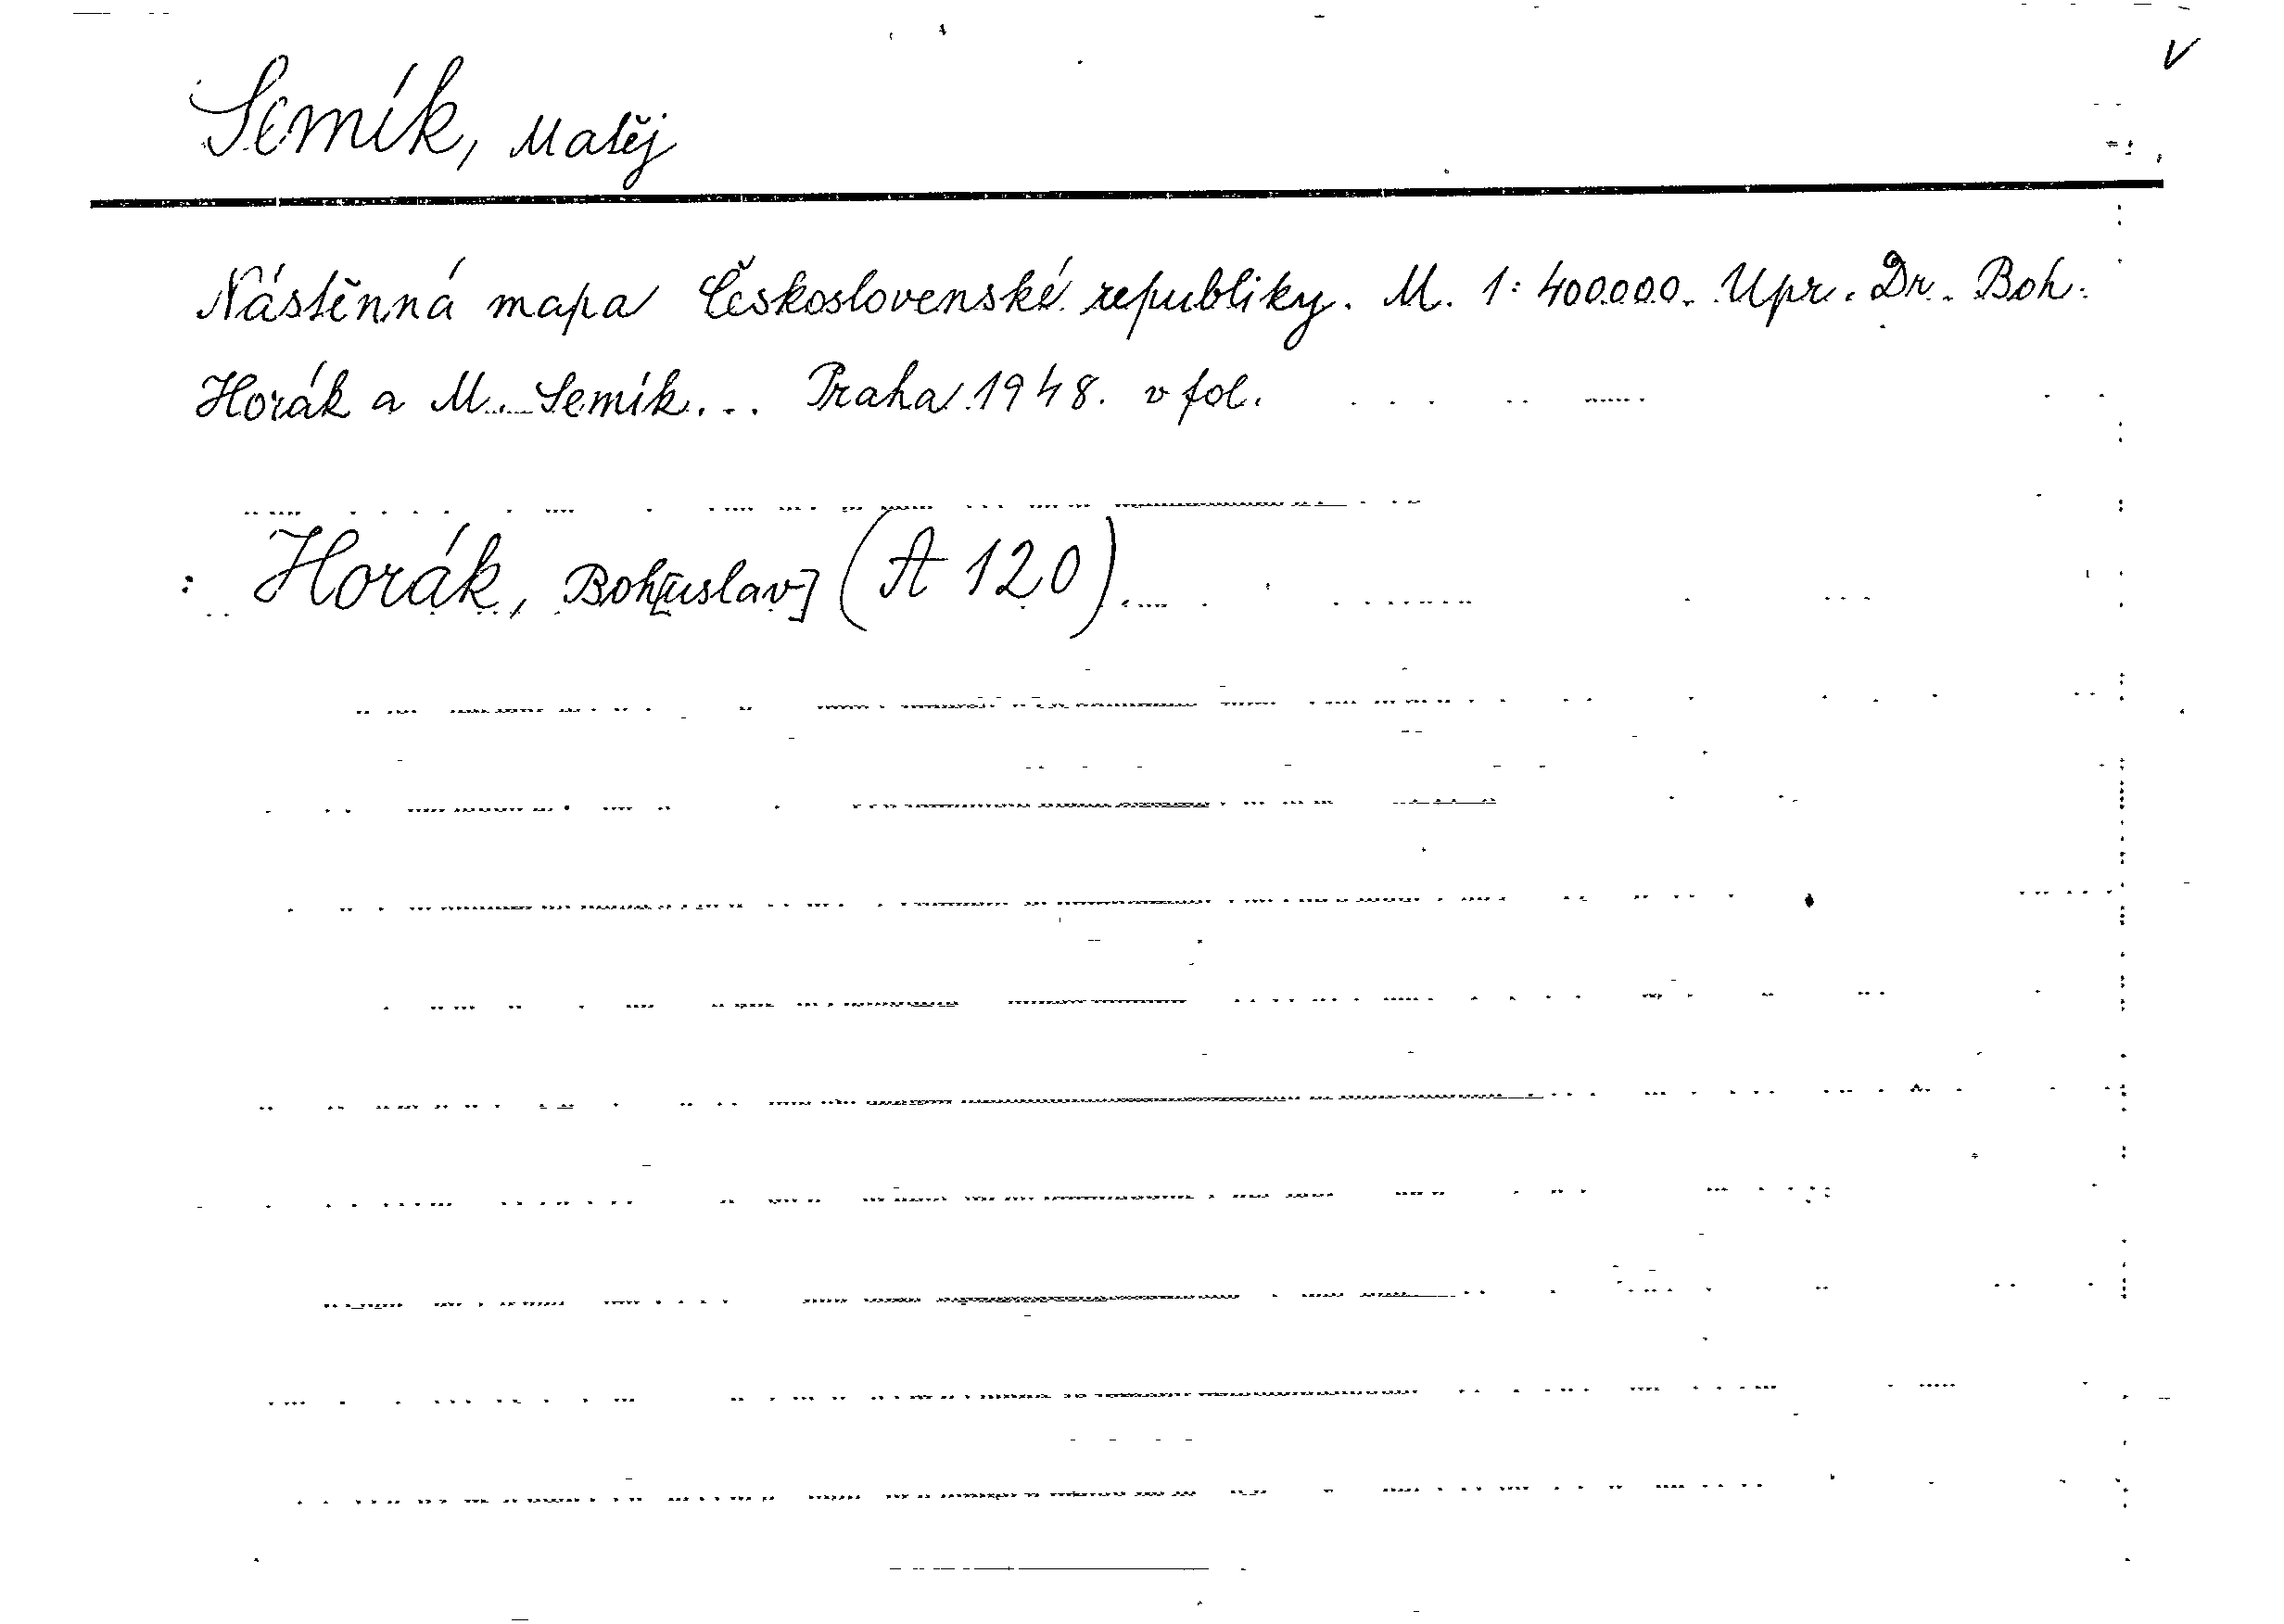 V
Semík, Matěj
Nástěnná mapa Československé republiky. M. 1:400.000. Upr. Dr. Boh.
Horák a M. Semík... Praha 1948. v fol.
: Horák, Boh[uslav] (A 120)